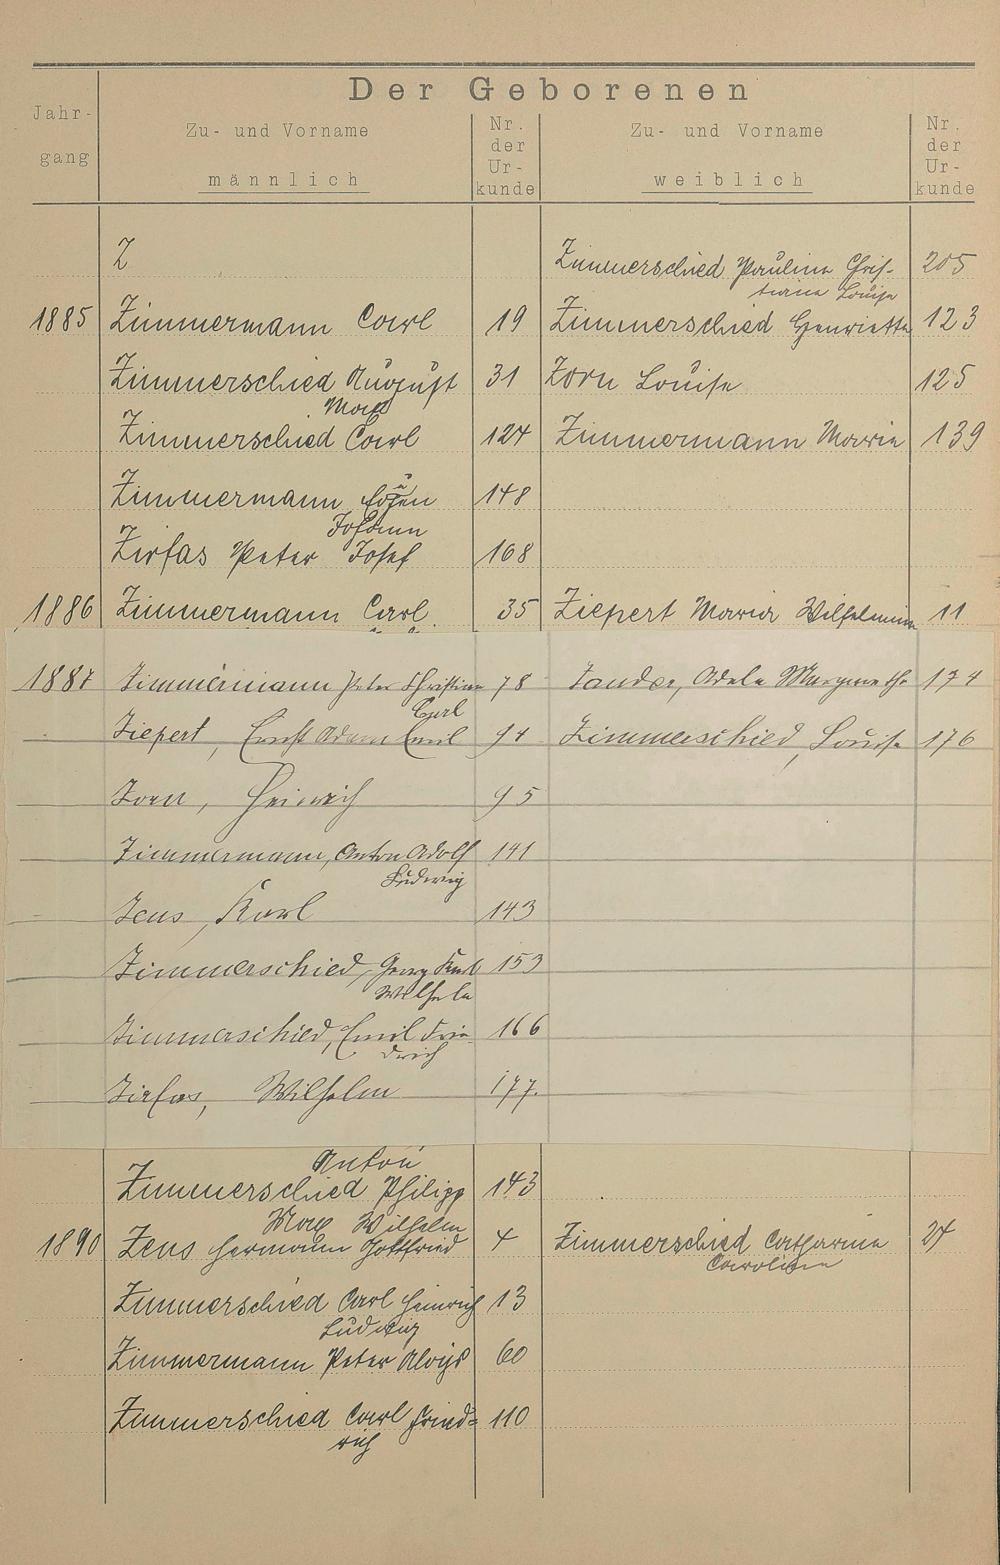 Der Geborenen
Jahr-
gang
Zu- und Vorname
männlich
Nr.
der
Ur-
kunde
Zu- und Vorname
weiblich
Nr.
der
Ur-
kunde
Z Zimmerschied Paulina Chris- 205
tiane Louise
1885 Zimmermann Carl 19 Zimmerschied Henriette 123
Zimmerschied August 31 Zorn Louise 125
Max
Zimmerschied Carl 124 Zimmermann Maria 139
Zimmermann 148
Johann
Zirfas Peter Josef 168
1886 Zimmermann Carl 35 Ziepert Maria Wilhelmine 11
1887 Zimmermann Peter Christian 78 Zander, Adele Margarethe 174
Carl
Ziepert, Ernst Adam Emil 94 Zimmerschied, Louise 176
Zorn, Heinrich 95
Zimmermann, Anton Adolf 141
Ludwig
Zeus, Karl 143
Zimmerschied, Georg Karl 153
Wilhelm
Zimmerschied, Emil Frie- 166
drich
Zirfas, Wilhelm 177.
Anton
Zimmerschied Philipp 143
Max Wilhelm
1890 Zeus Hermann Gottfried 4 Zimmerschied Catharina 24
Caroline
Zimmerschied Carl Heinrich 13
Ludwig
Zimmermann Peter Aloys 60
Zimmerschied Carl Fried= 110
rich